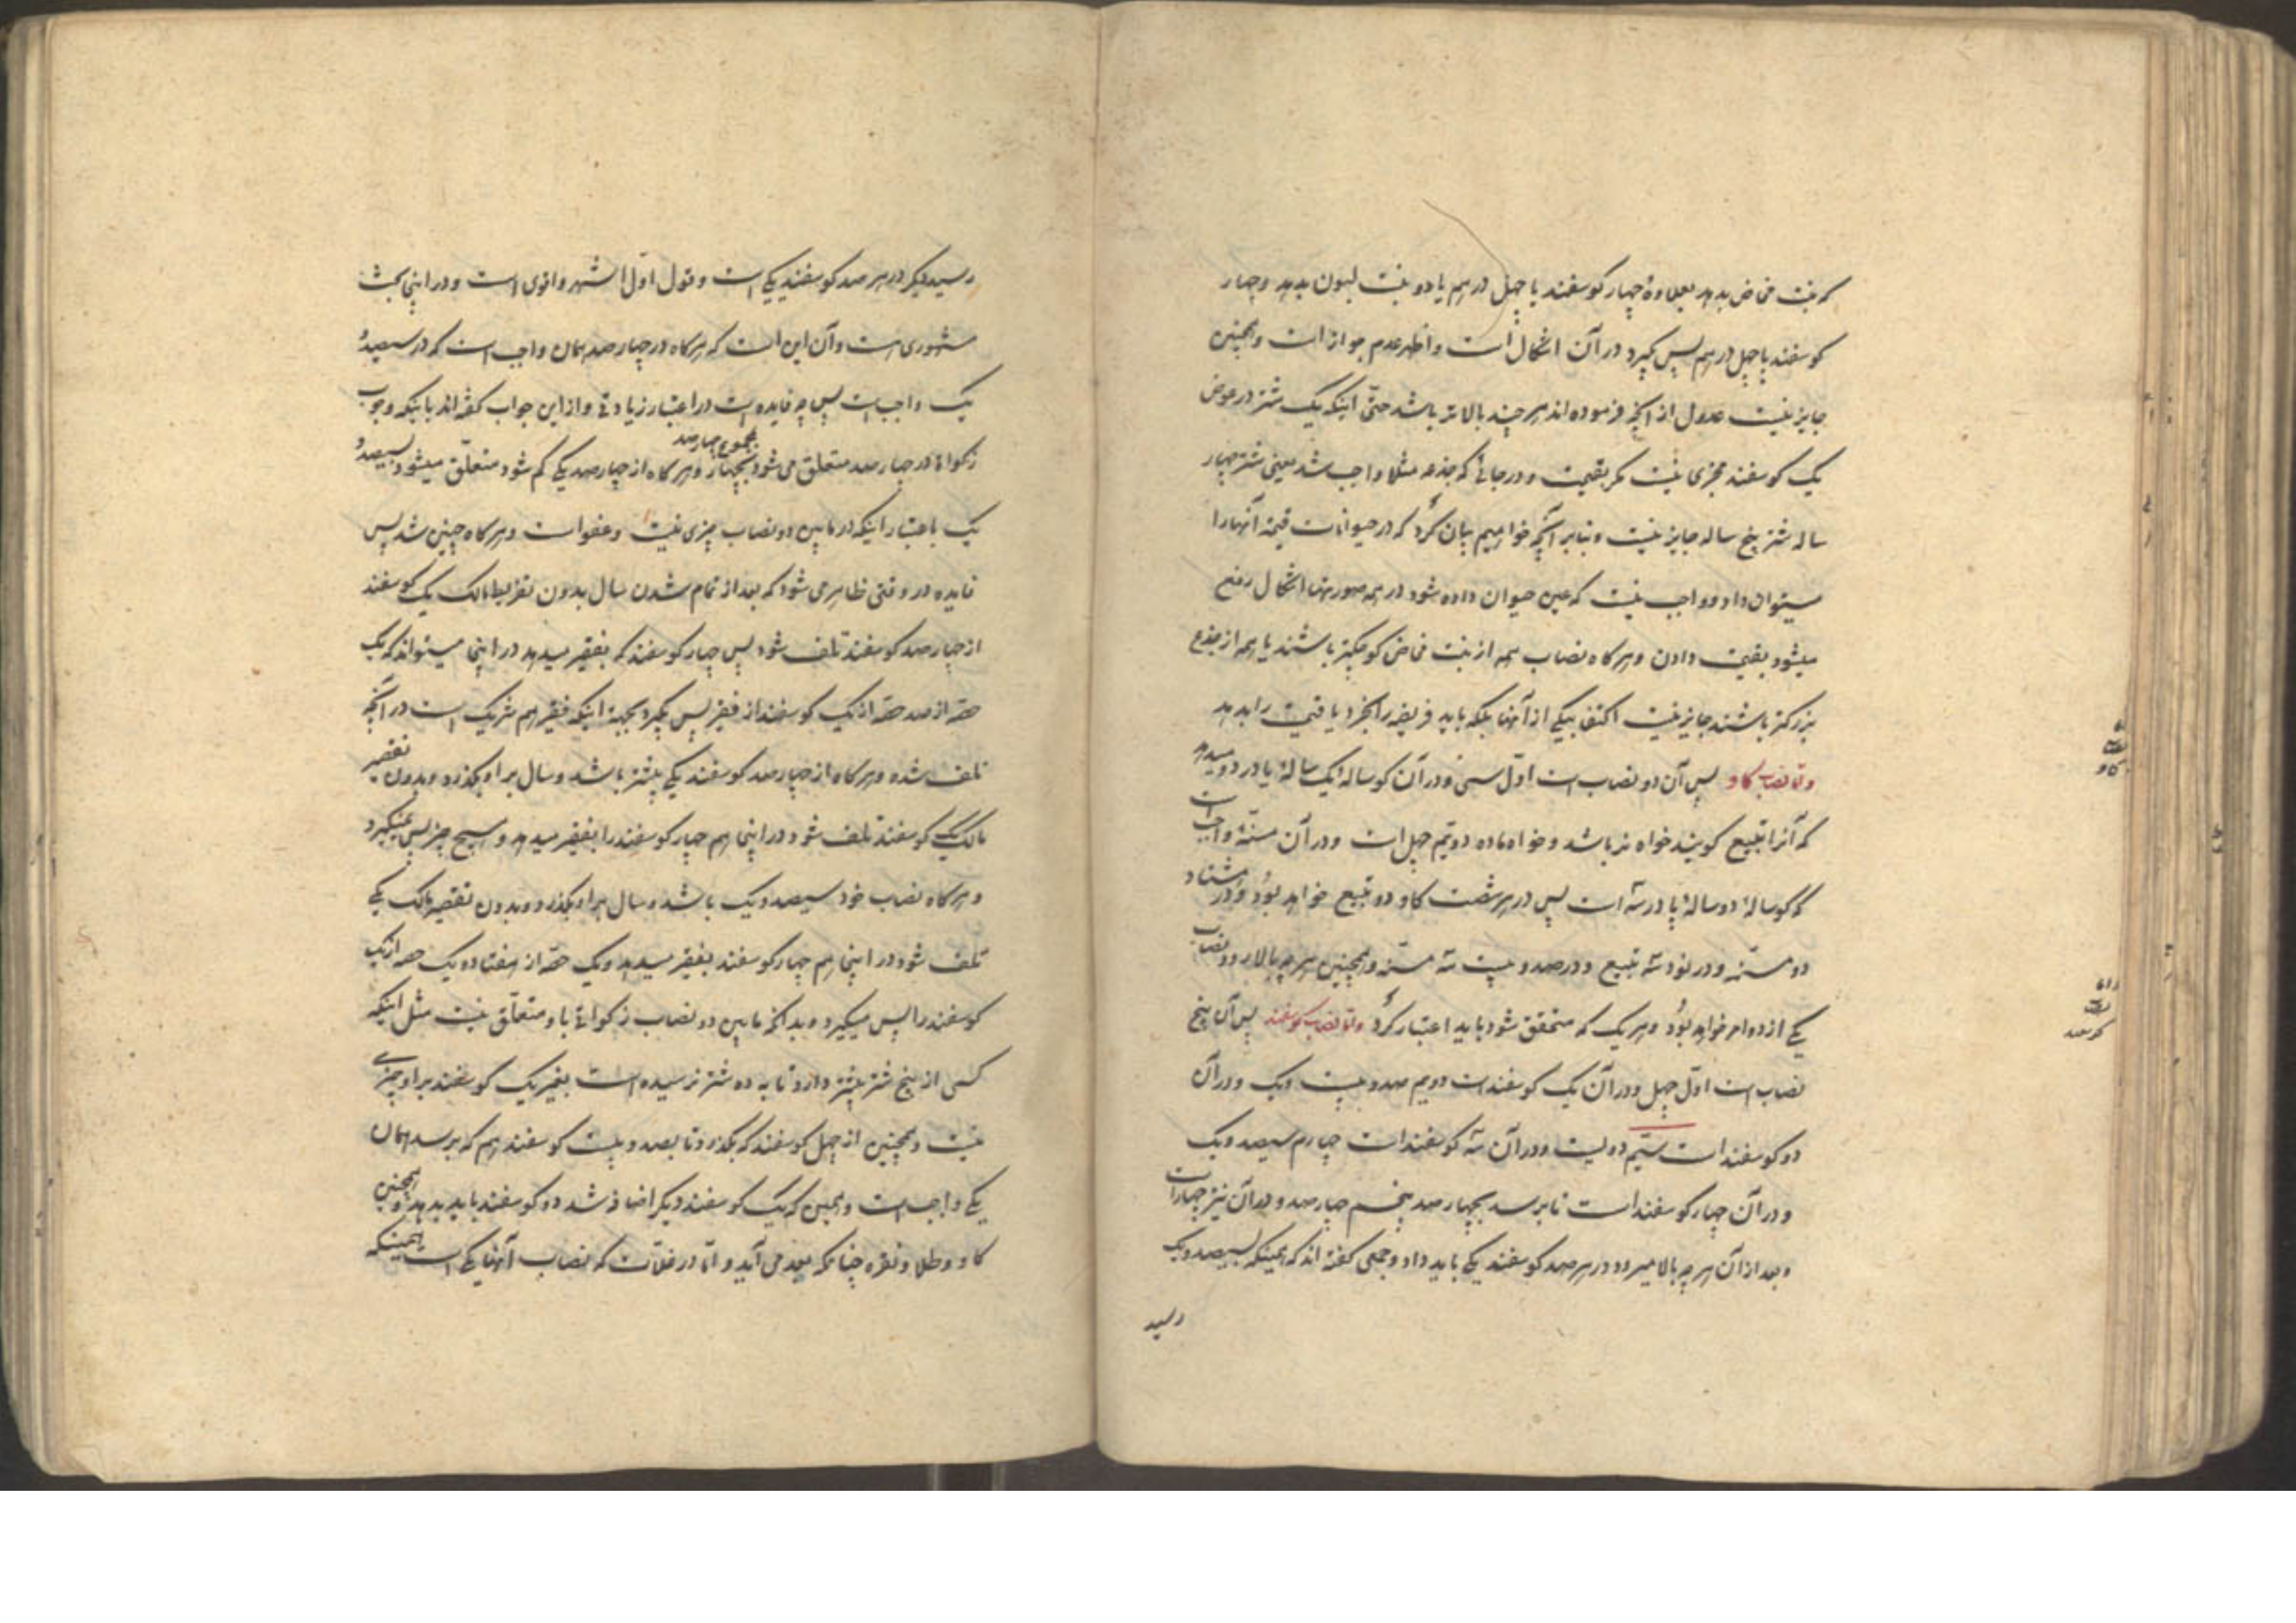 که بنت مخاض بدهد بعلاوهٔ چهار کوسفند یا چهل درهم یا دو بنت لبون بدهد و چهار
کوسفند یا چهل درهم پس کیرد در آن اشکال است و اظهر عدم جواز است و همچنین
جایز نیست عدول از آنچه فرموده‌اند هر چند بالاتر باشد حتّی اینکه یک شتر در عوض
یک کوسفند مجزی نیست مکر بقیمت و در جائی که جذعه مثلا واجب شد یعنی شتر چهار
ساله شتر پنج ساله جایز نیست و بنابر آنچه خواهیم بیان کرد که در حیوانات قیمة آنها را
میتوان داد و واجب نیست که عین حیوان داده شود در همه صورتها اشکال رفع
میشود بقیمت دادن و هر کاه نصاب همه از بنت مخاض کوچکتر باشند یا همه از جذع
بزرکتر باشند جایز نیست اکتفا بیکی از آنها بلکه باید فریضه را بخرد یا قیمت را بدهد
و امّا نصاب کاو پس آن دو نصاب است اوّل سی و در آن کوساله یک سالهٔ یا در دو میدهد
که آنرا تبیع کویند خواه نر باشد و خواه ماده دویّم چهل است و در آن مسنّهٔ واجب است
که کوسالهٔ دو سالهٔ پا در سه است پس در هر شصت کاو دو تبیع خواهد بود و در هشتاد
دو مسنّه و در نود سه تبیع و در صد و بیست سه مسنّه و همچنین هر چه بالا رود نصاب
یکی از دو امر خواهد بود و هر یک که متحقق شود باید اعتبار کرد و امّا نصاب کوسفند پس آن پنج
نصاب است اوّل چهل و در آن یک کوسفند است دویم صد و بیست و یک و در آن
دو کوسفند است سیّم دویست و در آن سه کوسفند است چهارم سیصد و یک
و در آن چهار کوسفند است تا برسد بچهار صد پنجم چهار صد و در آن نیز چهار است
و بعد از آن هر چه بالا میرود در هر صد کوسفند یکی باید داد و جمعی کفته‌اند که همینکه بسیصد و یک
رسید
نصاب
کاو
نصاب
کوسفند
رسید دیکر در هر صد کوسفند یکی است و قول اوّل اشهر و اقوی است و در اینجا بحث
مشهوری است و آن این است که هر کاه در چهار صد همان واجب است که در سیصد و
یک واجب است پس چه فایده است در اعتبار زیادتی و از این جواب کفته‌اند باینکه وجوب
زکوة در چهار صد متعلق می شود بمجموع چهار صد و هر کاه از چهار صد یکی کم شود متعلّق میشود بسیصد و
یک باعتبار اینکه در مابین دو نصاب چیزی نیست و عفو است و هر کاه چنین شد پس
فایده در وقتی ظاهر می شود که بعد از تمام شدن سال بدون تفریط مالک یک کوسفند
از چهار صد کوسفند تلف شود پس چهار کوسفند که بفقیر میدهد در اینجا میتواند که یک
حصّه از صد حصّه از یک کوسفند از فقیر پس بکیرد بجهة اینکه فقیر هم شریک است در آنچه
تلف شده و هر کاه از چهار صد کوسفند یکی بیشتر باشد و سال بر او بکذرد و بدون تقصیر
مالک یکی کوسفند تلف شود در اینجا هم چهار کوسفند را بفقیر میدهد و هیچ چیز پس نمیکیرد
و هر کاه نصاب خود سیصد و یک باشد و سال بر او بکذرد و بدون تقصیر مالک یکی
تلف شود در اینجا هم چهار کوسفند بفقیر میدهد و یک حصّه از هفتاد و یک حصه از یک
کوسفند را پس میکیرد و بدانکه مابین دو نصاب زکواتی باو متعلّق نیست مثل اینکه
کسی از پنج شتر بیشتر دارد تا به ده شتر نرسیده است بغیر یک کوسفند بر او چیزی
نیست و همچنین از چهل کوسفند که بکذرد تا بصد و بیست کوسفند هم که برسد همان
یکی واجب است و همین که یک کوسفند دیکر اضافه شد دو کوسفند باید بدهد و همچنین
کاو و طلا و نقره چنانکه بعد می آید و امّا در غلّات که نصاب آنها یکی است همینکه